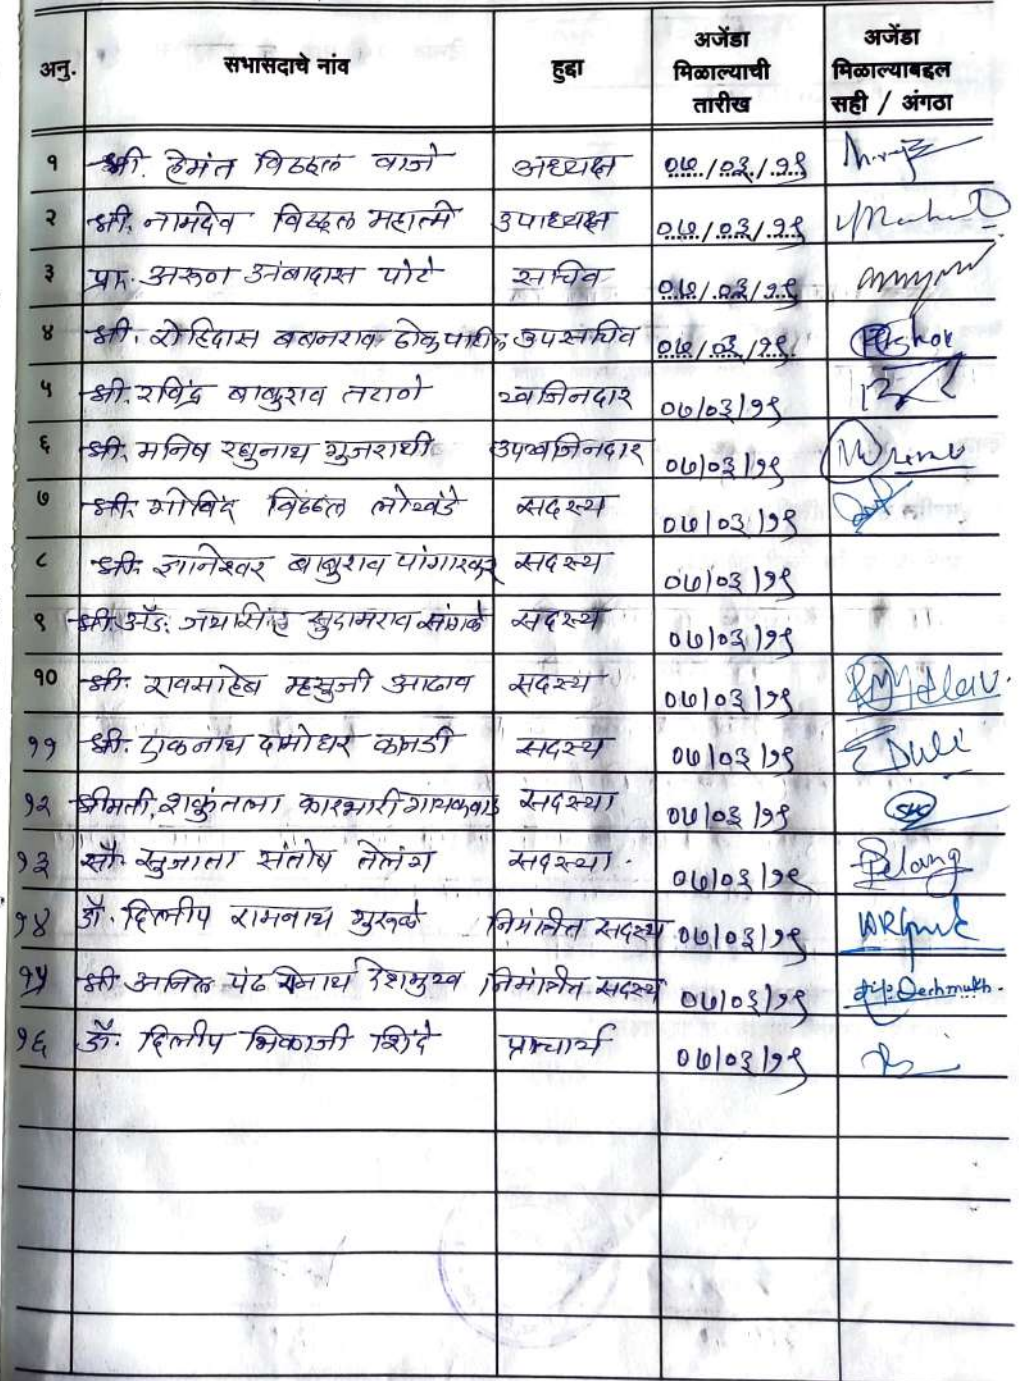 अनु. सभासदाचे नांव हुद्दा अजेंडा मिळाल्याची तारीख अजेंडा मिळाल्याबद्दल सही / अंगठा
१ श्री. हेमंत विठ्ठल वाजे अध्यक्ष ०७/०३/१९
२ श्री. नामदेव विठ्ठल महात्मे उपाध्यक्ष ०७/०३/१९
३ प्रा. अरुण अंबादास पोटे सचिव ०७/०३/१९
४ श्री. रोहिदास बबनराव उपसचिव ०७/०३/१९
५ श्री. रविंद्र बाबुराव तटाणे खजिनदार ०७/०३/१९
६ श्री. मनिष रघुनाथ गुजराथी उपखजिनदार ०७/०३/१९
७ श्री. गोविंद विठ्ठल लोखंडे सदस्य ०७/०३/१९
८ श्री. ज्ञानेश्वर बाबुराव पांगारकर सदस्य ०७/०३/१९
९ श्री. अॅड. जयसिंह सुदामराव सदस्य ०७/०३/१९
१० श्री. रावसाहेब म्हसुजी आढाव सदस्य ०७/०३/१९
११ श्री. एकनाथ दामोधर सदस्य ०७/०३/१९ EDuli
१२ श्रीमती. शकुंतला कारभारी गायकवाड सदस्या ०७/०३/१९
१३ सौ. सुजाता संतोष तेलंग सदस्या. ०७/०३/१९ Telang
१४ डॉ. दिलीप रामनाथ गुरुळे निमंत्रीत सदस्य ०७/०३/१९
१५ श्री. अनिल पंढरीनाथ देशमुख निमंत्रीत सदस्य ०७/०३/१९ Deshmukh.
१६ डॉ. दिलीप भिकाजी शिंदे प्राचार्य ०७/०३/१९